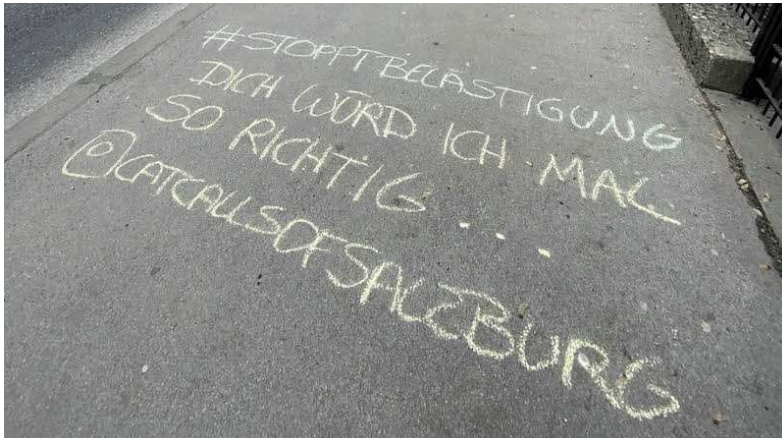 #STOPPTBELÄSTIGUNG
DICH WÜRD ICH MAL
SO RICHTIG...
@CATCALLSOFSALZBURG